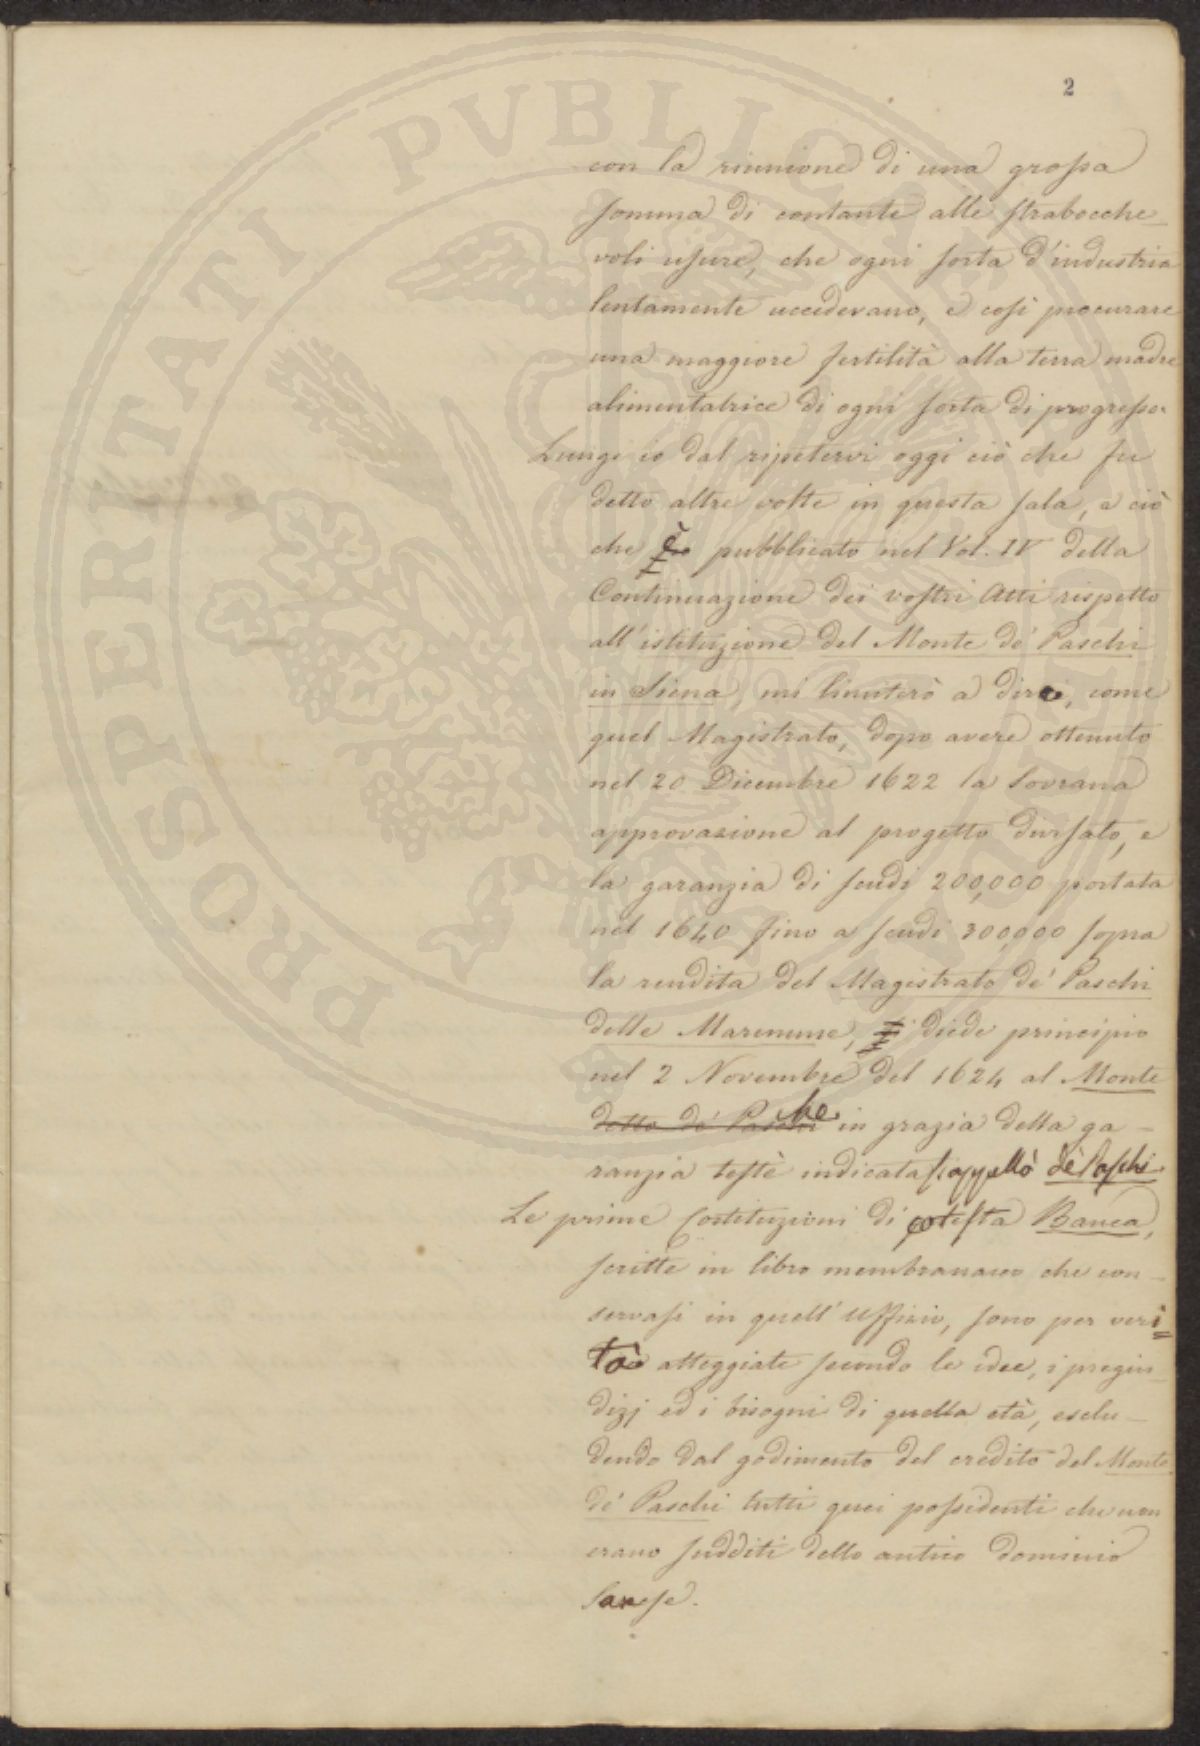 2
con la riunione di una grossa
somma di contante alle strabocche_
voli usure, che ogni sorta d'industria
lentamente uccidevano, e così procurare
una maggiore fertilità alla terra madre
alimentatrice di ogni sorta di progresso.
Lungi io dal ripetervi oggi ciò che fu
detto altre volte in questa sala, e ciò
che è pubblicato nel Vol. IV della
Continuazione dei vostri Atti rispetto
all'istituzione del Monte de' Paschi
in Siena, mi limiterò a dire, come
quel Magistrato, dopo avere ottenuto
nel 20 Dicembre 1622 la Sovrana
approvazione al progetto divisato, e
la garanzia di scudi 200,000 portata
nel 1640 fino a scudi 300,000 sopra
la rendita del Magistrato de' Paschi
delle Maremme, diede principio
nel 2 Novembre del 1624 al Monte
detto de' Paschi che in grazia della ga_
ranzia testè indicata s'appellò de' Paschi
Le prime Costituzioni di cotesta Banca,
scritte in libro membranaceo che con_
servasi in quell'Uffizio, sono per veri=
tà atteggiate secondo le idee, i pregiu_
dizj ed i bisogni di quella età, esclu_
dendo dal godimento del credito del Monte
de' Paschi tutti quei possidenti che non
erano sudditi dello antico dominio
Sanese.
PROSPERITATI PVBLICAE